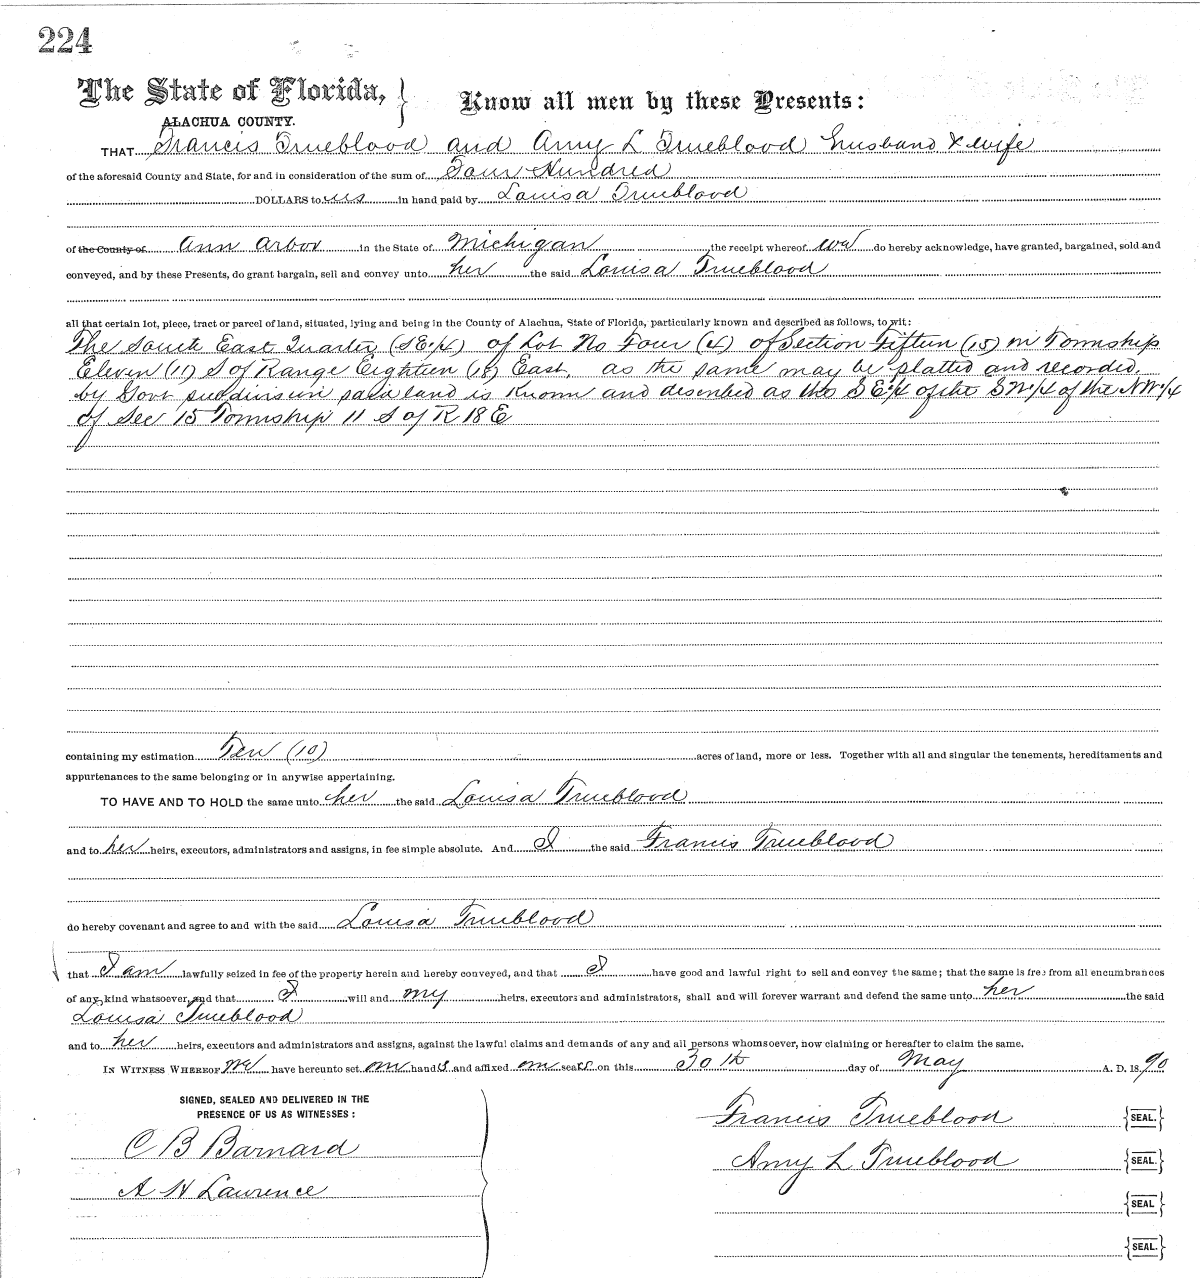 224
The State of Florida, } Know all men by these Presents:
ALACHUA COUNTY.
THAT Francis Trueblood and Amy L Trueblood husband & wife
of the aforesaid County and State, for and in consideration of the sum of Four Hundred
DOLLARS to us in hand paid by Louisa Trueblood
of the County of Ann Arbor in the State of Michigan the receipt whereof we do hereby acknowledge, have granted, bargained, sold and
conveyed, and by these Presents, do grant bargain, sell and convey unto her the said Louisa Trueblood
all that certain lot, piece, tract or parcel of land, situated, lying and being in the County of Alachua, State of Florida, particularly known and described as follows, to wit:
The South East Quarter (SE¼) of Lot No Four (4) of Section Fifteen (15) in Township
Eleven (11) S of Range Eighteen (18) East, as the same may be platted and recorded,
by Govt subdivision said land is known and described as the SE¼ of the SW¼ of the NW¼
of Sec 15 Township 11 S of R 18 E
containing my estimation Ten (10) acres of land, more or less. Together with all and singular the tenements, hereditaments and
appurtenances to the same belonging or in anywise appertaining.
TO HAVE AND TO HOLD the same unto her the said Louisa Trueblood
and to her heirs, executors, administrators and assigns, in fee simple absolute. And I the said Francis Trueblood
do hereby covenant and agree to and with the said Louisa Trueblood
that I am lawfully seized in fee of the property herein and hereby conveyed, and that I have good and lawful right to sell and convey the same; that the same is free from all encumbrances
of any kind whatsoever, and that I will and my heirs, executors and administrators, shall and will forever warrant and defend the same unto her the said
Louisa Trueblood
and to her heirs, executors and administrators and assigns, against the lawful claims and demands of any and all persons whomsoever, now claiming or hereafter to claim the same.
IN WITNESS WHEREOF we have hereunto set our hands and affixed our seals on this 30th day of May A. D. 1890
SIGNED, SEALED AND DELIVERED IN THE
PRESENCE OF US AS WITNESSES:
C B Barnard
A H Lawrence
Francis Trueblood {SEAL.}
Amy L Trueblood {SEAL.}
{SEAL}
{SEAL.}